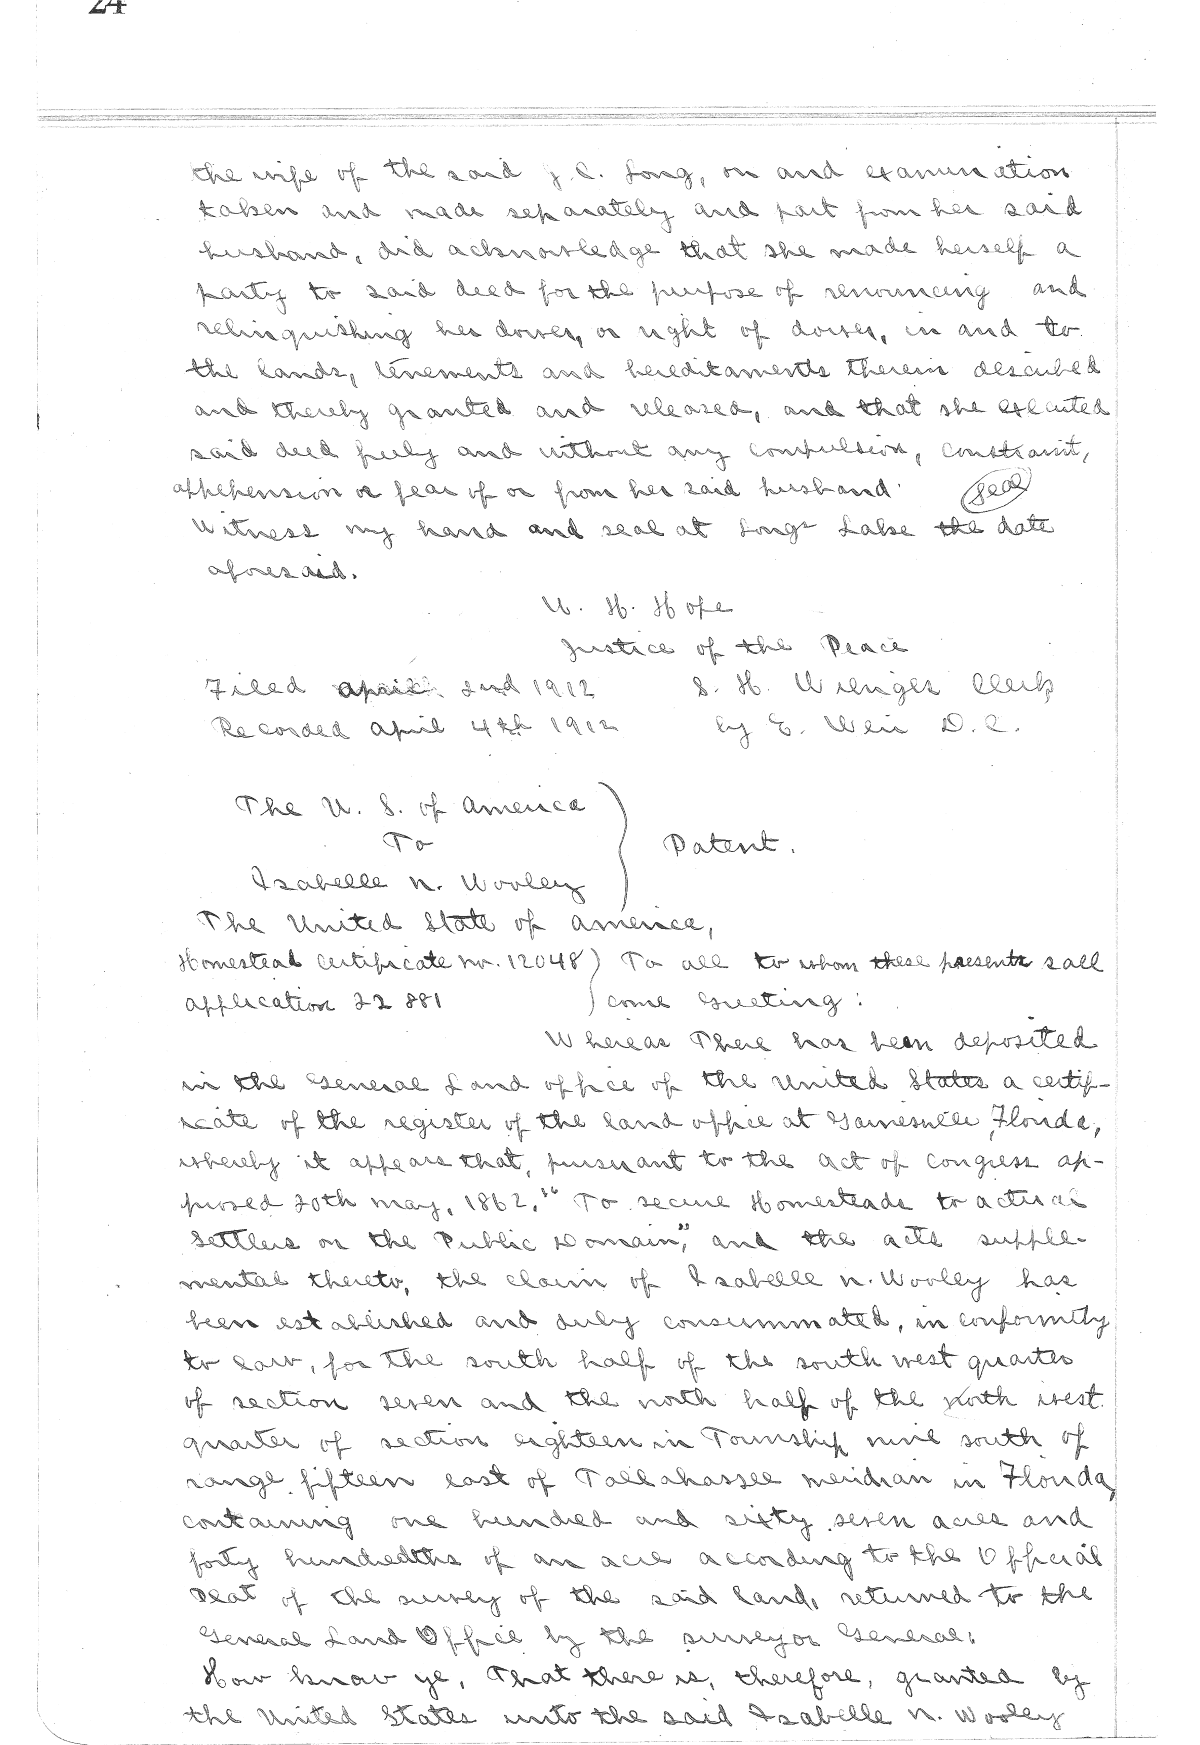 24
the wife of the said J. C. Long, on and examination
taken and made separately and part from her said
husband, did acknowledge that she made herself a
party to said deed for the purpose of renouncing and
relinquishing her dower, or right of dower, in and to
the lands, tenements and hereditaments therein described
and thereby granted and released, and that she executed
said deed freely and without any compulsion, constraint,
apprehension or fear of or from her said husband.
Seal
Witness my hand and seal at Longs Lake the date
aforesaid.
W. H. Hope
Justice of the Peace
Filed april 2nd 1912 S. H. Clerk
Recorded april 4th 1912 by E. Weir D.C.
The U. S. of America
To
Patent.
Isabelle N. Wooley
The United State of America,
Homestead Certificate no. 12048 ) To all to whom these presents sall
application 22881 ) come Greeting:
Whereas There has been deposited
in the General Land office of the United States a certif-
icate of the register of the land office at Gainesville, Florida,
whereby it appears that, pursuant to the act of Congress ap-
proved 20th may, 1862, "To secure Homesteads to actual
Settlers on the Public Domain," and the acts supple-
mental thereto, the claim of Isabelle N. Wooley has
been established and duly consummated, in conformity
to law, for the south half of the south west quarter
of section seven and the north half of the north west
quarter of section eighteen in Township nine south of
range fifteen east of Tallahassee meridian in Florida,
containing one hundred and sixty seven acres and
forty hundredths of an acre according to the Official
Plat of the survey of the said land, returned to the
General Land Office by the surveyor General:
How know ye, That there is, therefore, granted by
the United States unto the said Isabelle N. Wooley